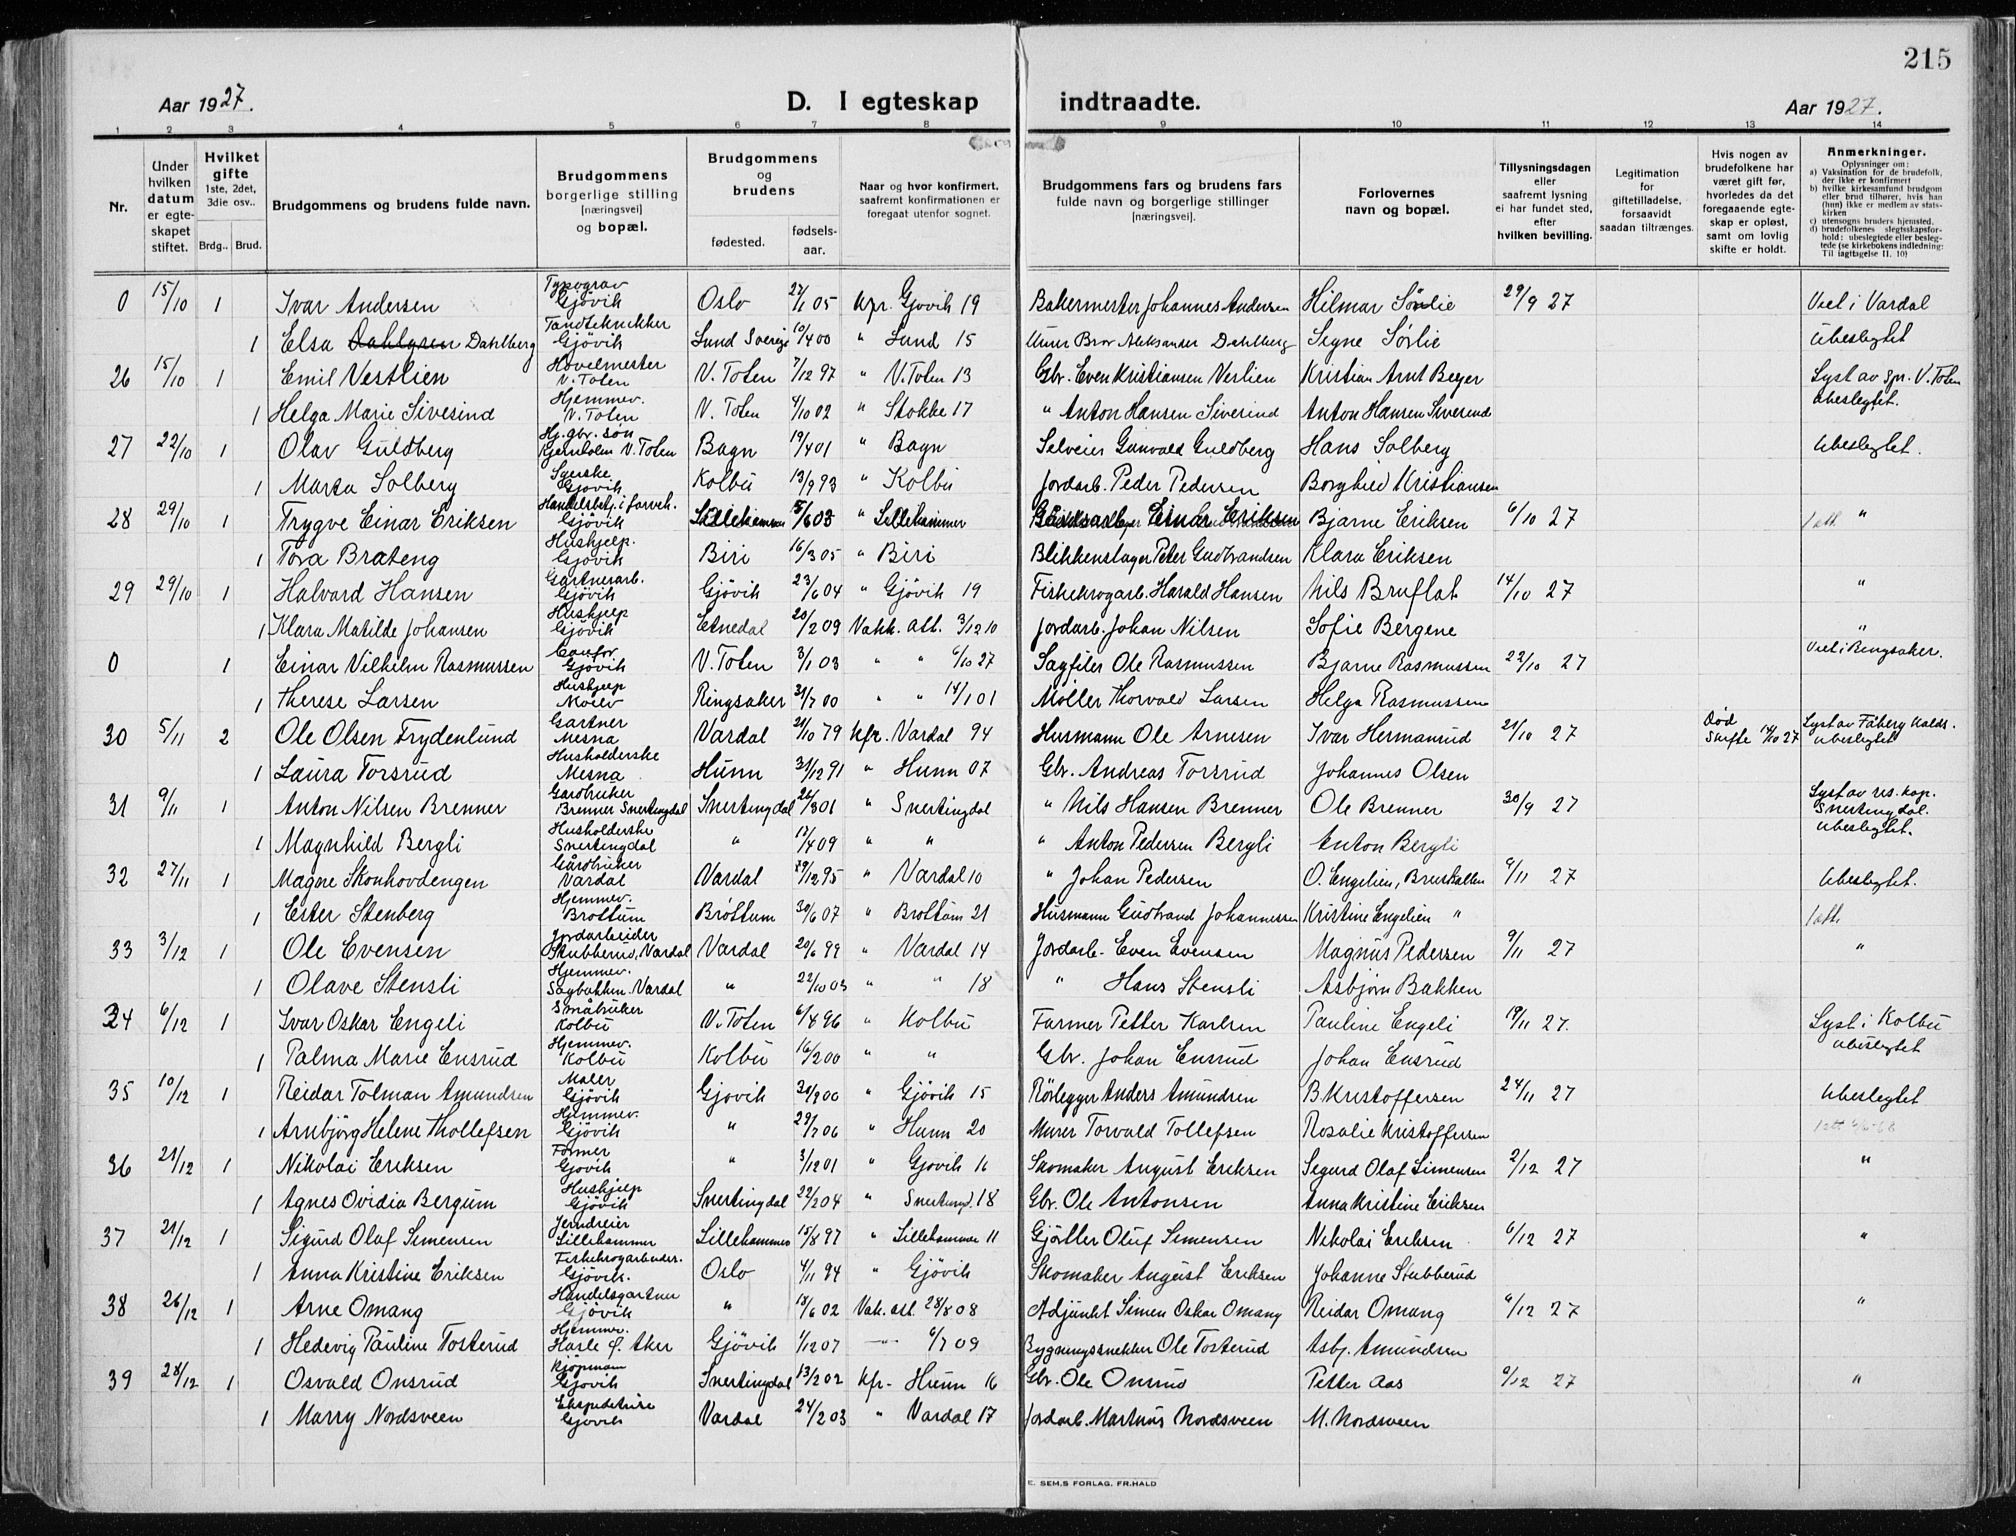 215
Aar 1927.
D. I egteskap indtraadte.
Aar 1927.
1 2 3 4 5 6 7 8 9 10 11 12 13 14
Nr.
Under hvilken datum er egteskapet stiftet.
Hvilket gifte 1ste, 2det, 3die osv..
Brdg.. Brud.
Brudgommens og brudens fulde navn.
Brudgommens borgerlige stilling [næringsvei] og bopæl.
Brudgommens og brudens
fødested. fødselsaar.
Naar og hvor konfirmert. saafremt konfirmationen er foregaat utenfor sognet.
Brudgommens fars og brudens fars fulde navn og borgerlige stillinger [næringsvei].
Forlovernes navn og bopæl.
Tillysningsdagen eller saafremt lysning ei har fundet sted, efter hvilken bevilling.
Legitimation for giftetilladelse, forsaavidt saadan tiltrænges.
Hvis nogen av brudefolkene har været gift før, hvorledes da det foregaaende egteskap er opløst, samt om lovlig skifte er holdt.
Anmerkninger.
Oplysninger om:
a) Vaksination for de brudefolk, der ikke er konfirmert
b) hvilke kirkesamfund brudgom eller brud tilhører, hvis han (hun) ikke er medlem av statskirken
c) utensogns bruders hjemsted.
d) brudefolkenes slegtsskapsforhold: ubeslegtede eller beslegtede (se kirkebokens indledning: Til iagttagelse II. 10)
0 15/10 1 Ivar Andersen Typograv Gjövik Oslo 05 Kfr. Gjövik 19 Bakermester Johannes Andersen Hilmar Sørlie 29/9 27 Viet i Vardal
1 Elsa Dahlgren Dahlberg Tandtekniker Gjövik Lund Sverige 10/4 00 " Lund 15 Murer Bror Aleksander Dahlberg Signe Sørlie Ubeslegtet
26 15/10 1 Emil Vestlien Hovelmester V. Toten V. Toten 7/12 97 " V. Toten 13 Gbr. Even Kristiansen Verlien Kristian Arnt Beyer Lyst av spr. V. Toten
1 Helga Marie Sivesind Hjemmev. V. Toten V. Toten 4/10 02 " Stokke 17 " Anton Hansen Sivesind Anton Hansen Sivesind Ubeslegtet.
27 22/10 1 Olav Guldberg Hj. gbr. søn V. Toten Bagn 19/4 01 " Bagn Selveier Gunvald Guldberg Hans Solberg Ubeslegtet.
1 Marta Solberg Syerske Gjövik Kolbu 13/9 93 " Kolbu Jordarb. Peder Pedersen Borghild Kristiansen
28 29/10 1 Trygve Einar Eriksen Gjövik Lillehammer 5/6 03 " Lillehammer Einar Eriksen Bjarne Eriksen 6/10 27 1 att. "
1 Tora Brateng Hushjelp. Gjövik Biri 16/3 05 " Biri Blikkenslager Peter Gudbrandsen Klara Eriksen
29 29/10 1 Halvard Hansen Gartnerarb. Gjövik Gjövik 23/6 04 " Gjövik 19 Fiskekrogarb. Harald Hansen Nils Bruflat 14/10 27 "
1 Klara Matilde Johansen Hushjelp Gjövik Etnedal 20/2 09 Vakk. att. 3/12 10 Jordarb. Johan Nilsen Sofie Bergene "
0 1 Einar Vilhelm Rasmussen Gjövik V. Toten 3/1 03 " " 6/10 27 Sagfiler Ole Rasmussen Bjarne Rasmussen 22/10 27 Viet i Ringsaker.
1 Therese Larsen Hushjelp Moelv Ringsaker 31/7 00 " " 14/1 01 Møller Thorvald Larsen Helga Rasmussen
30 5/11 2 Ole Olsen Frydenlund Gartner Mesna Vardal 21/10 79 Kfr. Vardal 94 Husmann Ole Arnesen Ivar Hermanrud 21/10 27 Død Skifte 14/10 27 Lyst av Fåberg Ubeslegtet
1 Laura Torsrud Husholderske Mesna Hunn 31/12 91 " Hunn 07 Gbr. Andreas Torsrud Johannes Olsen
31 9/11 1 Anton Nilsen Brenner Gardbruker Brenner Snertingdal Snertingdal 26/3 01 " Snertingdal " Nils Hansen Brenner Ole Brenner 30/9 27 Lyst av res. kap. Snertingdal. Ubeslegtet.
1 Magnhild Bergli Husholderske Snertingdal " 17/4 09 " " " Anton Pedersen Bergli Anton Bergli
32 27/11 1 Magne Skonhovdengen Gårdbruker Vardal Vardal 29/12 95 " Vardal 10 " Johan Pedersen O. Engelien, 6/11 27 Ubeslegtet.
1 Ester Stenberg Hjemmev. Brøttum Brøttum 30/6 07 " Brøttum 21 Husmann Gudbrand Johannessen Kristine Engelien " 1 att.
33 3/12 1 Ole Evensen Jordarbeider Stubberud, Vardal Vardal 20/6 99 " Vardal 14 Jordarb. Even Evensen Magnus Pedersen 9/11 27 "
1 Olave Stensli Hjemmev. Sagbakken. Vardal " 22/10 03 " " 18 " Hans Stensli Asbjørn Bakken
34 6/12 1 Ivar Oskar Engeli Småbruker Kolbu V. Toten 6/8 96 " Kolbu Farmer Petter Karlsen Pauline Engeli 19/11 27. Lyst i Kolbu Ubeslegtet
1 Palma Marie Ensrud Hjemmev. Kolbu Kolbu 16/2 00 " " Gbr. Johan Ensrud Johan Ensrud
35 10/12 1 Reidar Tolman Amundsen Maler Gjövik Gjövik 00 " Gjövik 15 Rörlegger Anders Amundsen B Kristoffersen 24/11 27 Ubeslegtet
1 Arnbjörg Helene Thollefsen Hjemmev. Gjövik " 29/7 06 " Hunn 20 Murer Torvald Tollefsen Rosalie Kristoffersen
36 21/12 1 Nikolai Eriksen Former Gjövik " 3/12 01 " Gjövik 16 Skomaker August Eriksen Segurd Olaf Simensen 2/12 27 "
1 Agnes Ovidia Bergum Hushjelp Gjövik Snertingdal 22/2 04 " Snertingd. 18 Gbr. Ole Antonsen Anna Kristine Eriksen
37 21/12 1 Sigurd Olaf Simensen Jerndreier Lillehammer Lillehammer 15/8 97 " Lillehammer 11 Gjørtler Oluf Simensen Nikolai Eriksen 6/12 27 "
1 Anna Kristine Eriksen Fiskekrogarbeider. Gjövik. Oslo 4/11 94 " Gjövik Skomaker August Eriksen Johanne Stubberud
38 26/12 1 Arne Omang Handelsgartner Gjövik " 18/6 02 Vak. att. 28/8 08 Adjunkt Simen Oskar Omang Reidar Omang 6/12 27 "
1 Hedevig Pauline Tosterud Hjemmev. Hasle Ø. Aker Gjövik 1/12 07 — " — 6/7 09 Bygningssnekker Ole Tosterud Asbj. Amundsen
39 28/12 1 Osvald Onsrud Kjöpmann Gjövik Snertingdal 13/2 02 Kfr. Hunn 16 Gbr. Ole Onsrud Petter Aas 6/12 27 "
1 Marry Nordsveen Ekspeditrise Gjövik Vardal 24/2 03 " Vardal 17 Jordarb. Martinus Nordsveen M. Nordsveen
E. SEM.S FORLAG. FR.HALD